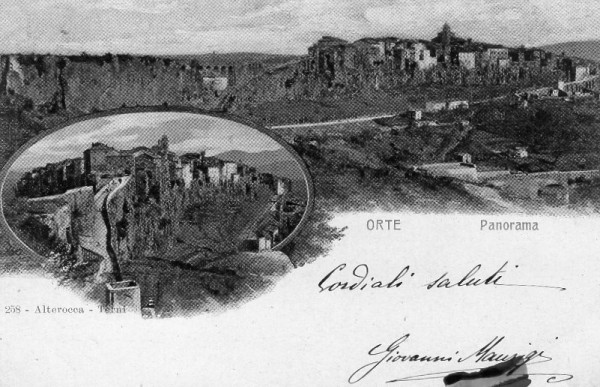 ORTE Panorama
258 - Alterocca - Terni
Cordiali saluti
Giovanni